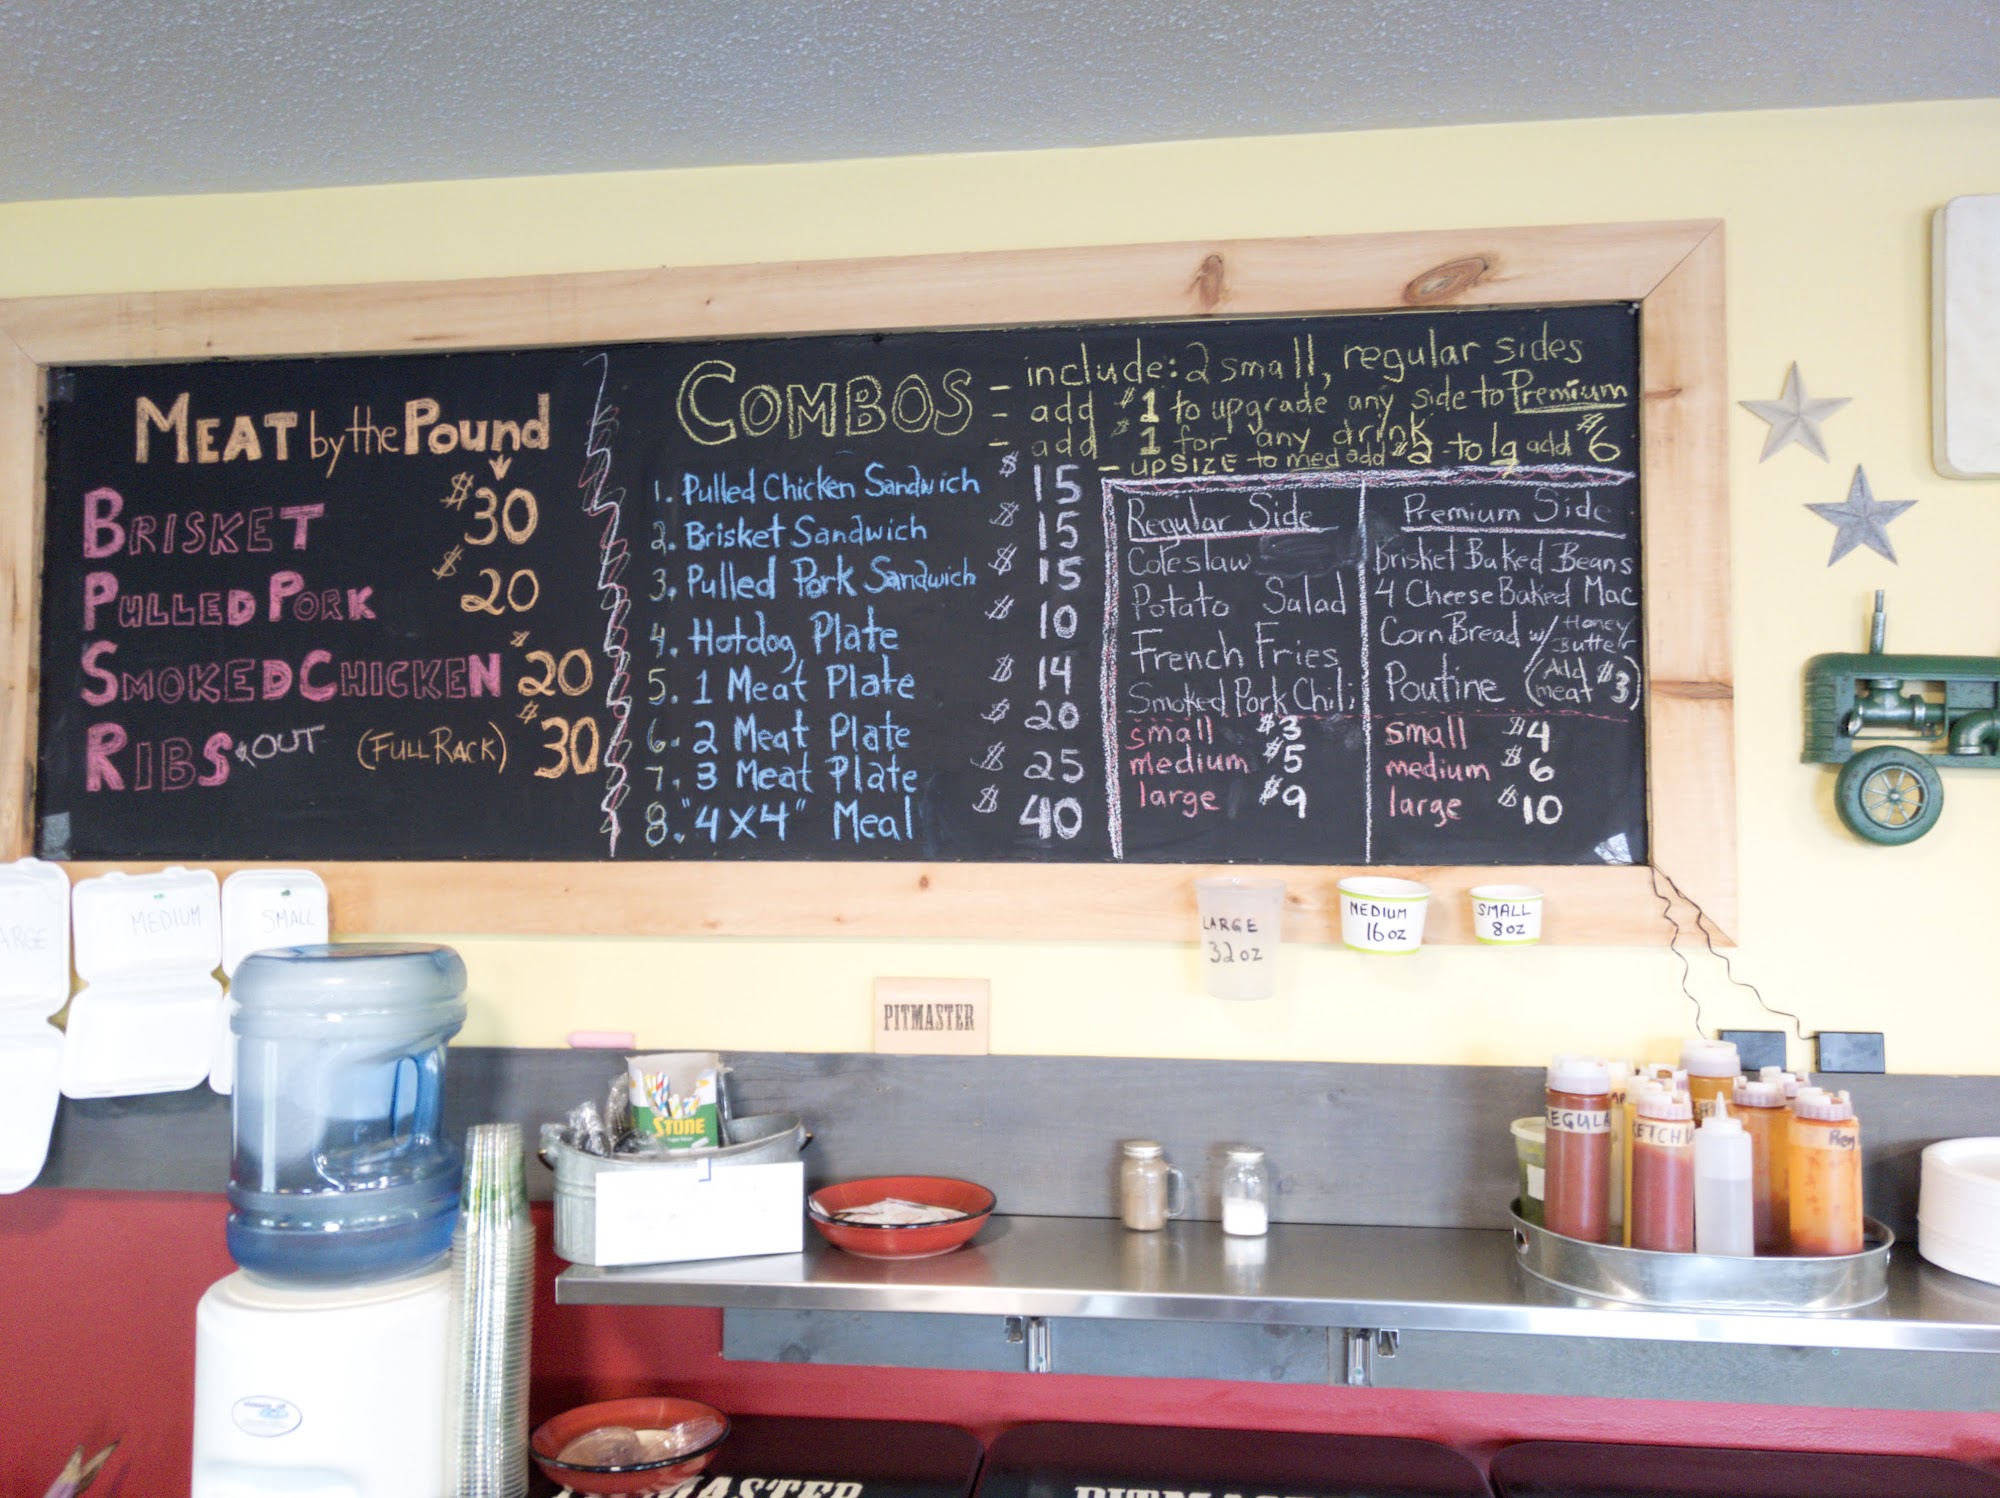 MEAT by the POUND
BRISKET $30
PULLED PORK $20
SMOKED CHICKEN $20
RIBS OUT (FULL RACK) $30
COMBOS
- include: 2 small, regular sides
- add $1 to upgrade any side to Premium
- add $1 for any drink
- UPSIZE to med add $2 - to lg add $6
1. Pulled Chicken Sandwich $15
2. Brisket Sandwich $15
3. Pulled Pork Sandwich $15
4. Hotdog Plate $10
5. 1 Meat Plate $14
6. 2 Meat Plate $20
7. 3 Meat Plate $25
8. "4X4" Meal $40
Regular Side
Coleslaw
Potato Salad
French Fries
Smoked Pork Chili
small $3
medium $5
large $9
Premium Side
Brisket Baked Beans
4 Cheese Baked Mac
Corn Bread w/ Honey Butter
Poutine (Add meat $3)
small $4
medium $6
large $10
ARGE
MEDIUM
SMALL
LARGE
32oz
MEDIUM
16oz
SMALL
8oz
PITMASTER
STONE
REGULA
KETCHU
MASTER
PITMAS